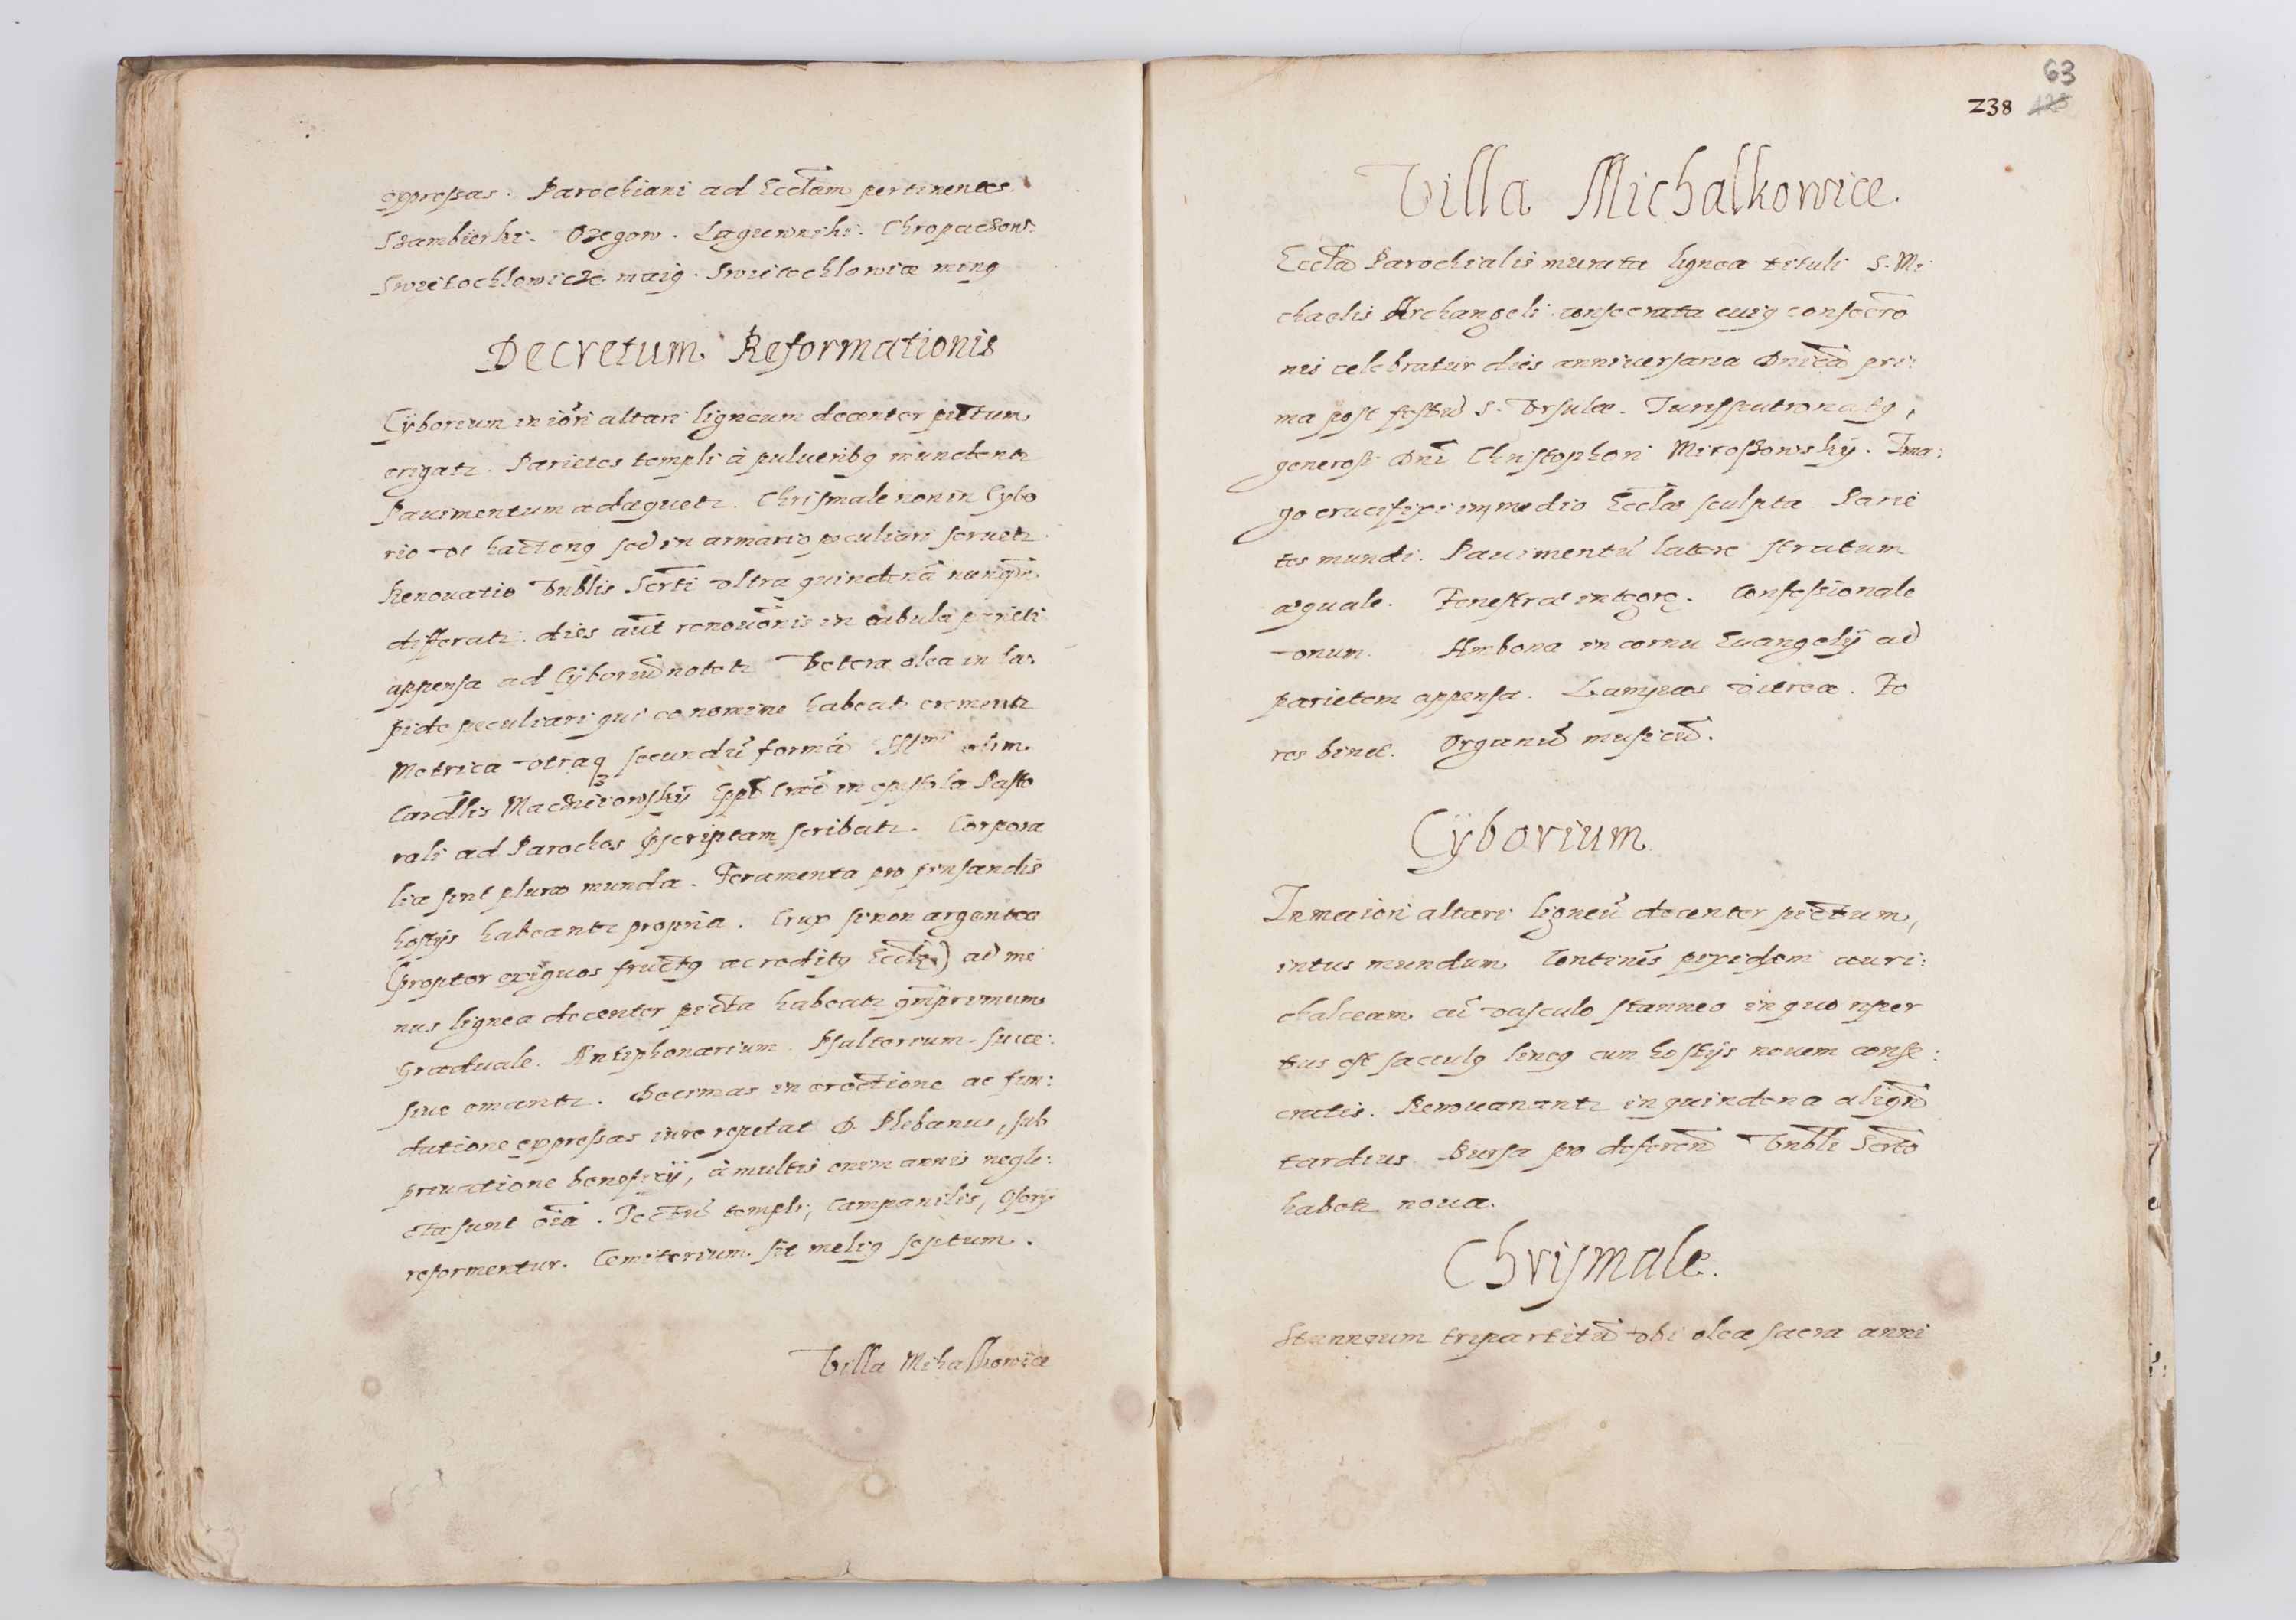 expressas. Parochiani ad Eccłam pertinentes
Szambierki. Orzegow. Lagiewniki. Chropaczow.
Swietochlowicze maig. Swietochlowice ming
Decretum Reformationis
Cÿborium in iōri altari ligneum decenter pictum
erigatr. Parietes templi à puluerib9 mundentr
Pauimentum adæquetr. Chrismale non in Cybo
rio vt hacten9 sed in armario peculiari seruetr.
Renouatio Vnblis Scrti vltra quindenā nunqm̄
differatr. dies aūt renouōnis in tabula parieti
appensa ad Cÿboriū notetr Vetera olea in la:
pide peculiari qui eo nomine habeatr crementr
Metrica vtraq3 secundū formā Illmi olim
Cardlis Macieiowskÿ Eppi Crac̄ in epistola Pasto
rali ad Parochos pscriptam scribatr. Corpora
lia sint plura munda. Feramenta pro pinsandis
hostÿs habeantr propria. Crux si non argentea
(propter exiguos fruct9 ac redit9 Eccłę) ad mi
nus lignea decenter picta habeatr qmprimum
Graduale. Antiphonarium. Psalterium. succe:
siue emantr. Decimas in erectione ac fun:
datione expressas iure repetat D. Plebanus, sub
priuatione beneficÿ, à multis enim annis negle:
cta sunt oīa. Tectū templi, Campanilis, Osorÿ
reformentur. Cemiterium sit meli9 septum.
Villa Mihalkowice
63
238
Villa Michalkowice.
Eccła Parochialis murata lignea tituli S. Mi
chaelis Archangeli consecrata cui9 consecrō
nis celebratur dies anniuersaria Dnicā pri:
ma post festū S. Vrsulæ. Iurispatronat9,
generosi Dnī Christophori Mieroszowskÿ. Ima:
go crucifixi in medio Eccłæ sculpta Parie
tes mundi. Pauimentū latere stratum
æquale. Fenestræ integrę. Confessionale
vnum. Ambona in cornu Euangelÿ ad
parietem appensa. Lampas vitrea. Fo
res binæ. Organū musicū.
Cÿborium
In maiori altari ligneū decenter pictum,
intus mundum Continēs pixidem auri:
chalceam cū vasculo stanneo in quo reper
tus est saccul9 line9 cum hostÿs nouem conse:
cratis. Renouanantr in quindena aliqn̄
tardius. Bursa pro deferend Vnbli Scrto
habetr noua.
Chrismale.
Stanneum tripartitū vbi olea sacra anni